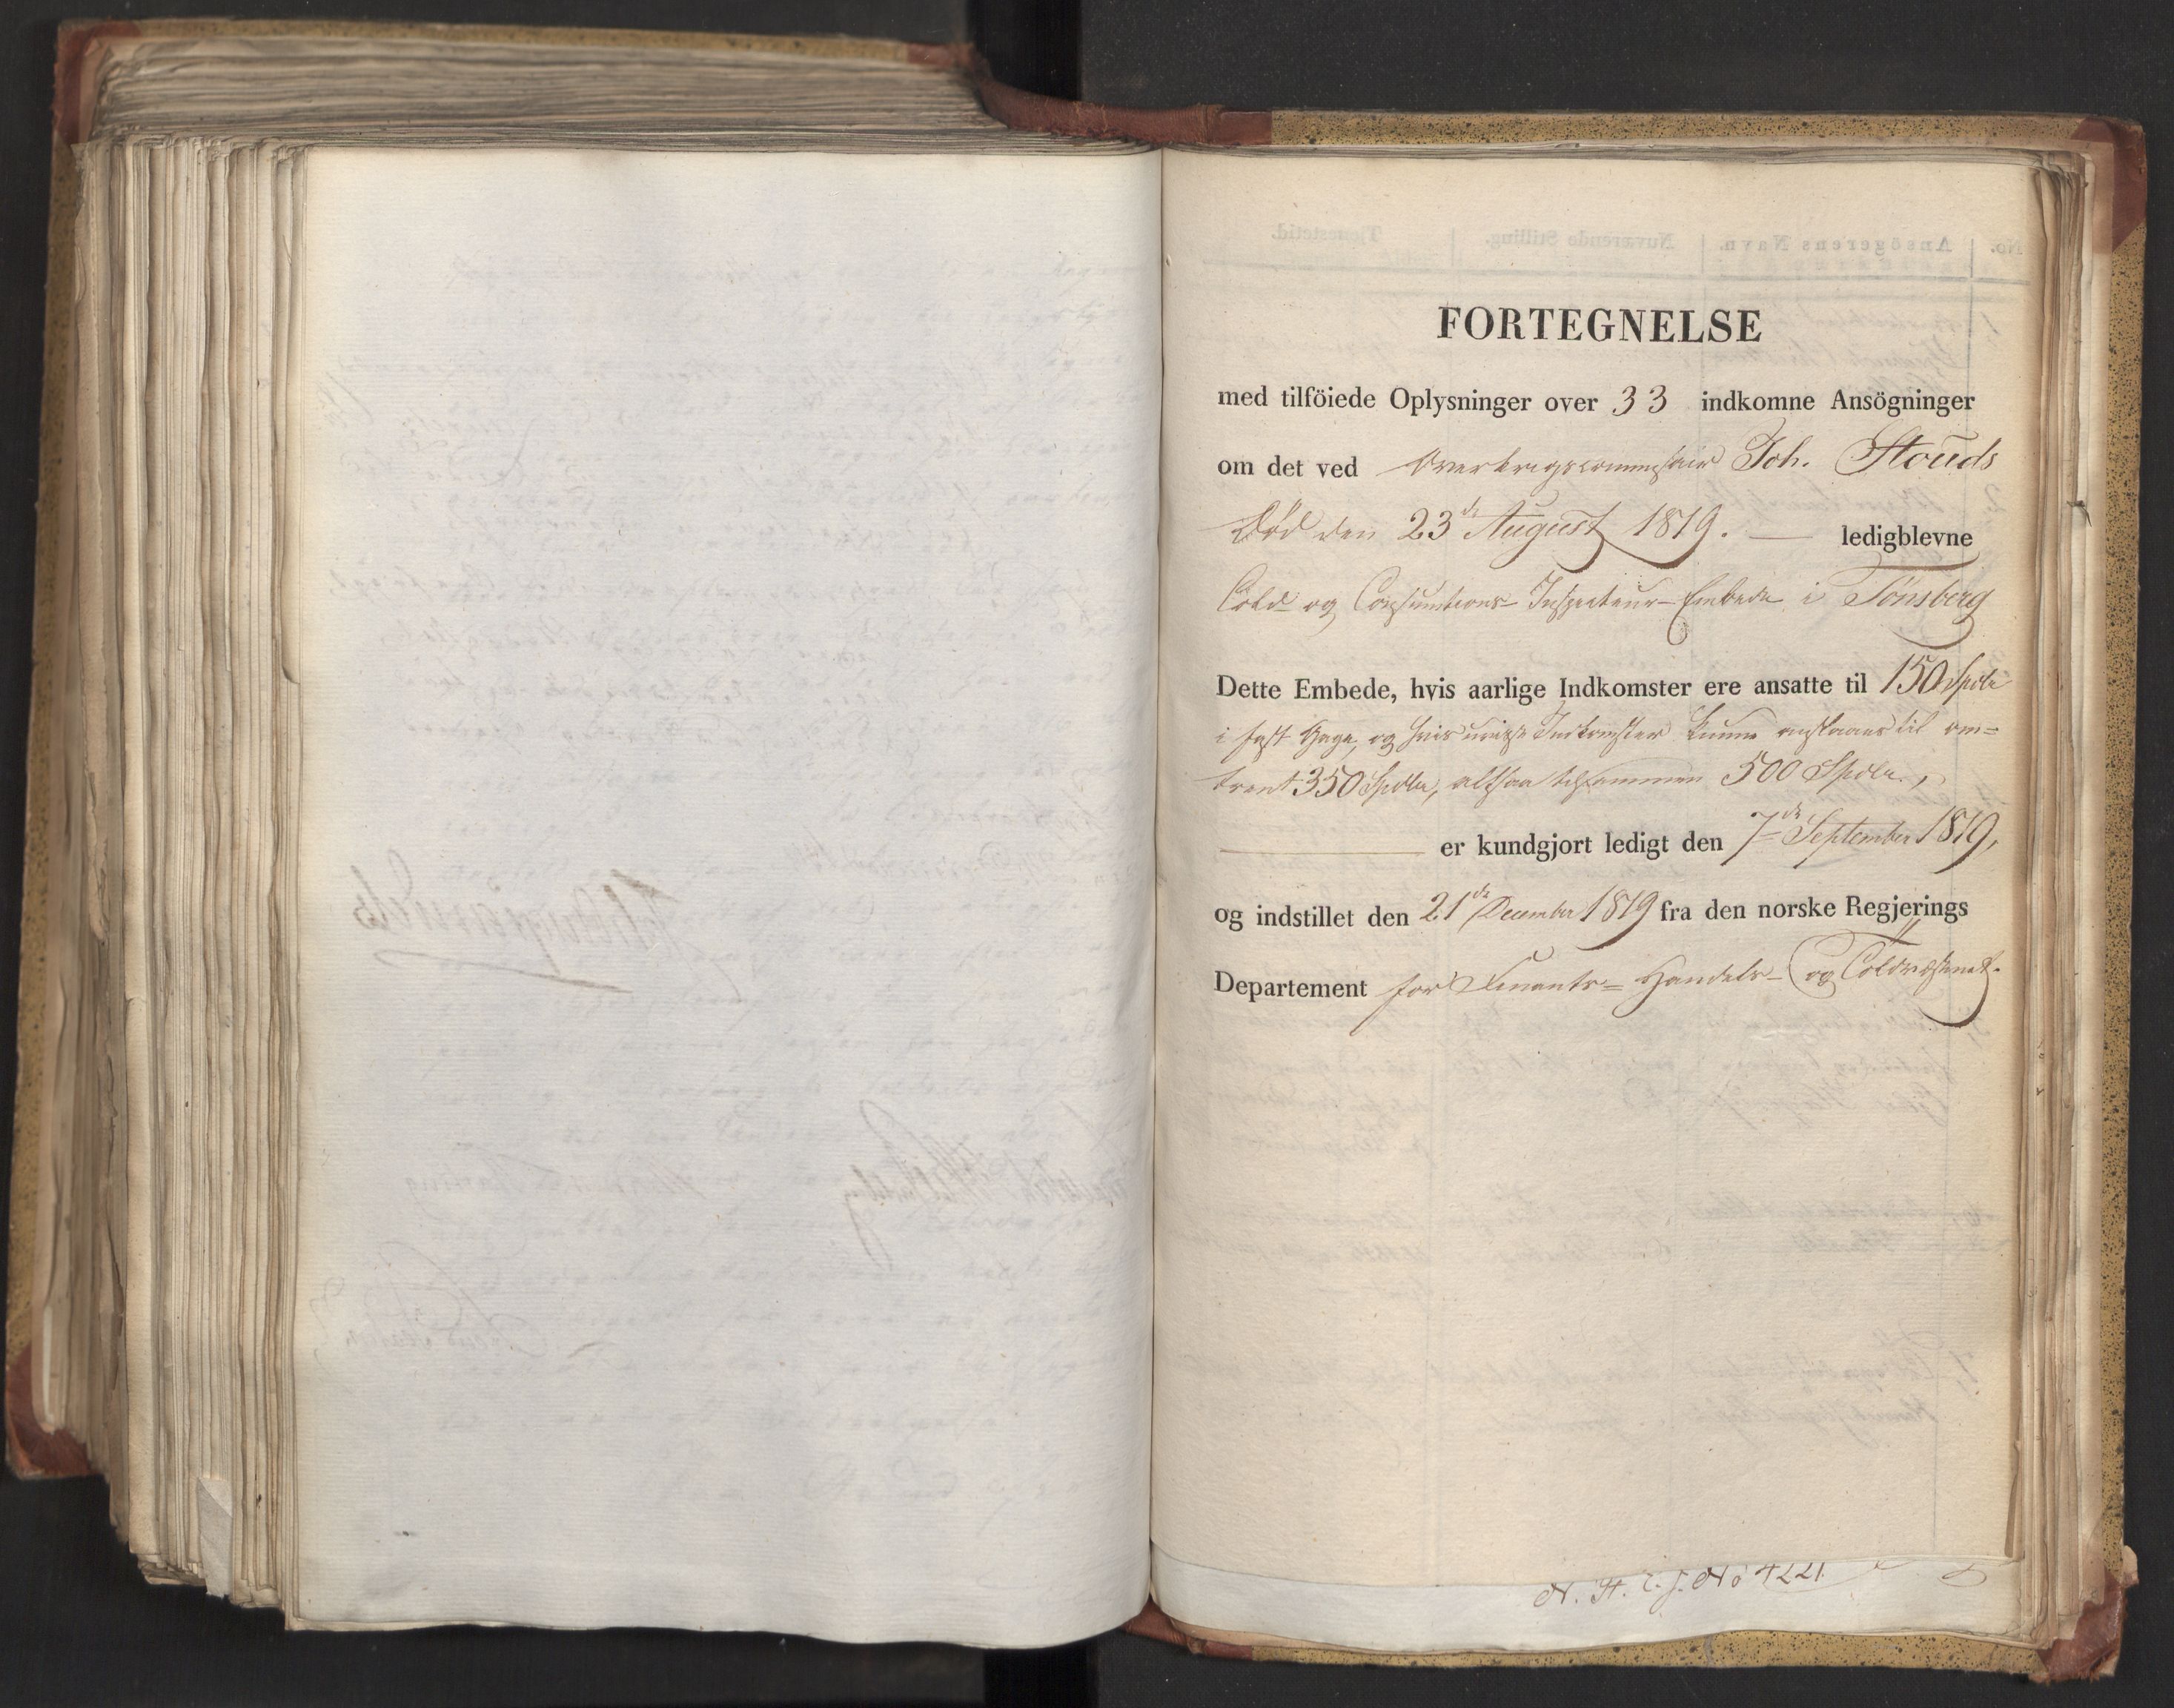 FORTEGNELSE
med tilföiede Oplysninger over 33 indkomne Ansögninger
om det ved Overkrigscommissair Joh. Stouds
Död den 23de August 1819. — ledigblevne
Told- og Consumtions-Inspecteur-Embede i Tönsberg
Dette Embede, hvis aarlige Indkomster ere ansatte til 150 Spdlr
i fast Gage, og hvis uvisse Indkomster kunne anslaaes til om=
trent 350 Spdlr, altsaa tilsammen 500 Spdlr.,
er kundgjort ledigt den 7de September 1819,
og indstillet den 21de December 1819 fra den norske Regjerings
Departement for Finants- Handels- og Toldvæsenet.
No 4221.